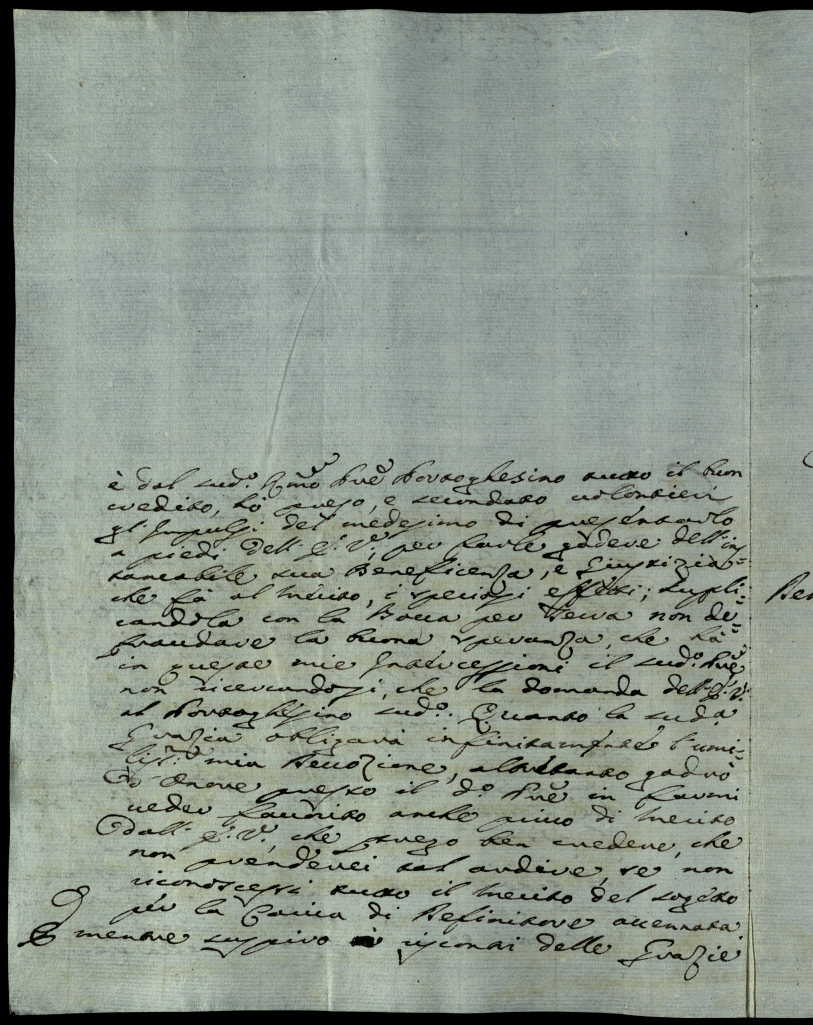 è dal sud.º R̃mo Prẽ Borroghesino tutto il buon
credito, hò preso, e secondato volontieri
gl'Impulsi del medesimo di presentarlo
a piedi dell'E: V:, per farle godere dell'in-
stancabile sua Beneficenza, e Giustizia
che fà al merito, i speciosi effetti; supli-
candola con la Bocca per Terra non de-
fraudare la buona speranza, che hà
in queste mie Intercessioni il sud.º Prẽ
non ricercandosi, che la domanda dell'E: V:
al Borroghesino sud.º. Quanto la sud.ª
Grazia obligarà infinitamente l'umi-
lis.ª mia Devozione, altretanto godrò
d'onore presso il d.º Prẽ in farmi
veder favorito anche piuo di merito
dall'E: V:, che prego ben credere, che
non prenderei tal ardire, se non
riconoscessi tutto il merito del sogetto
per la Carica di Definitore accennata
E mentre suspiro i riscontri delle Grazie
Ben